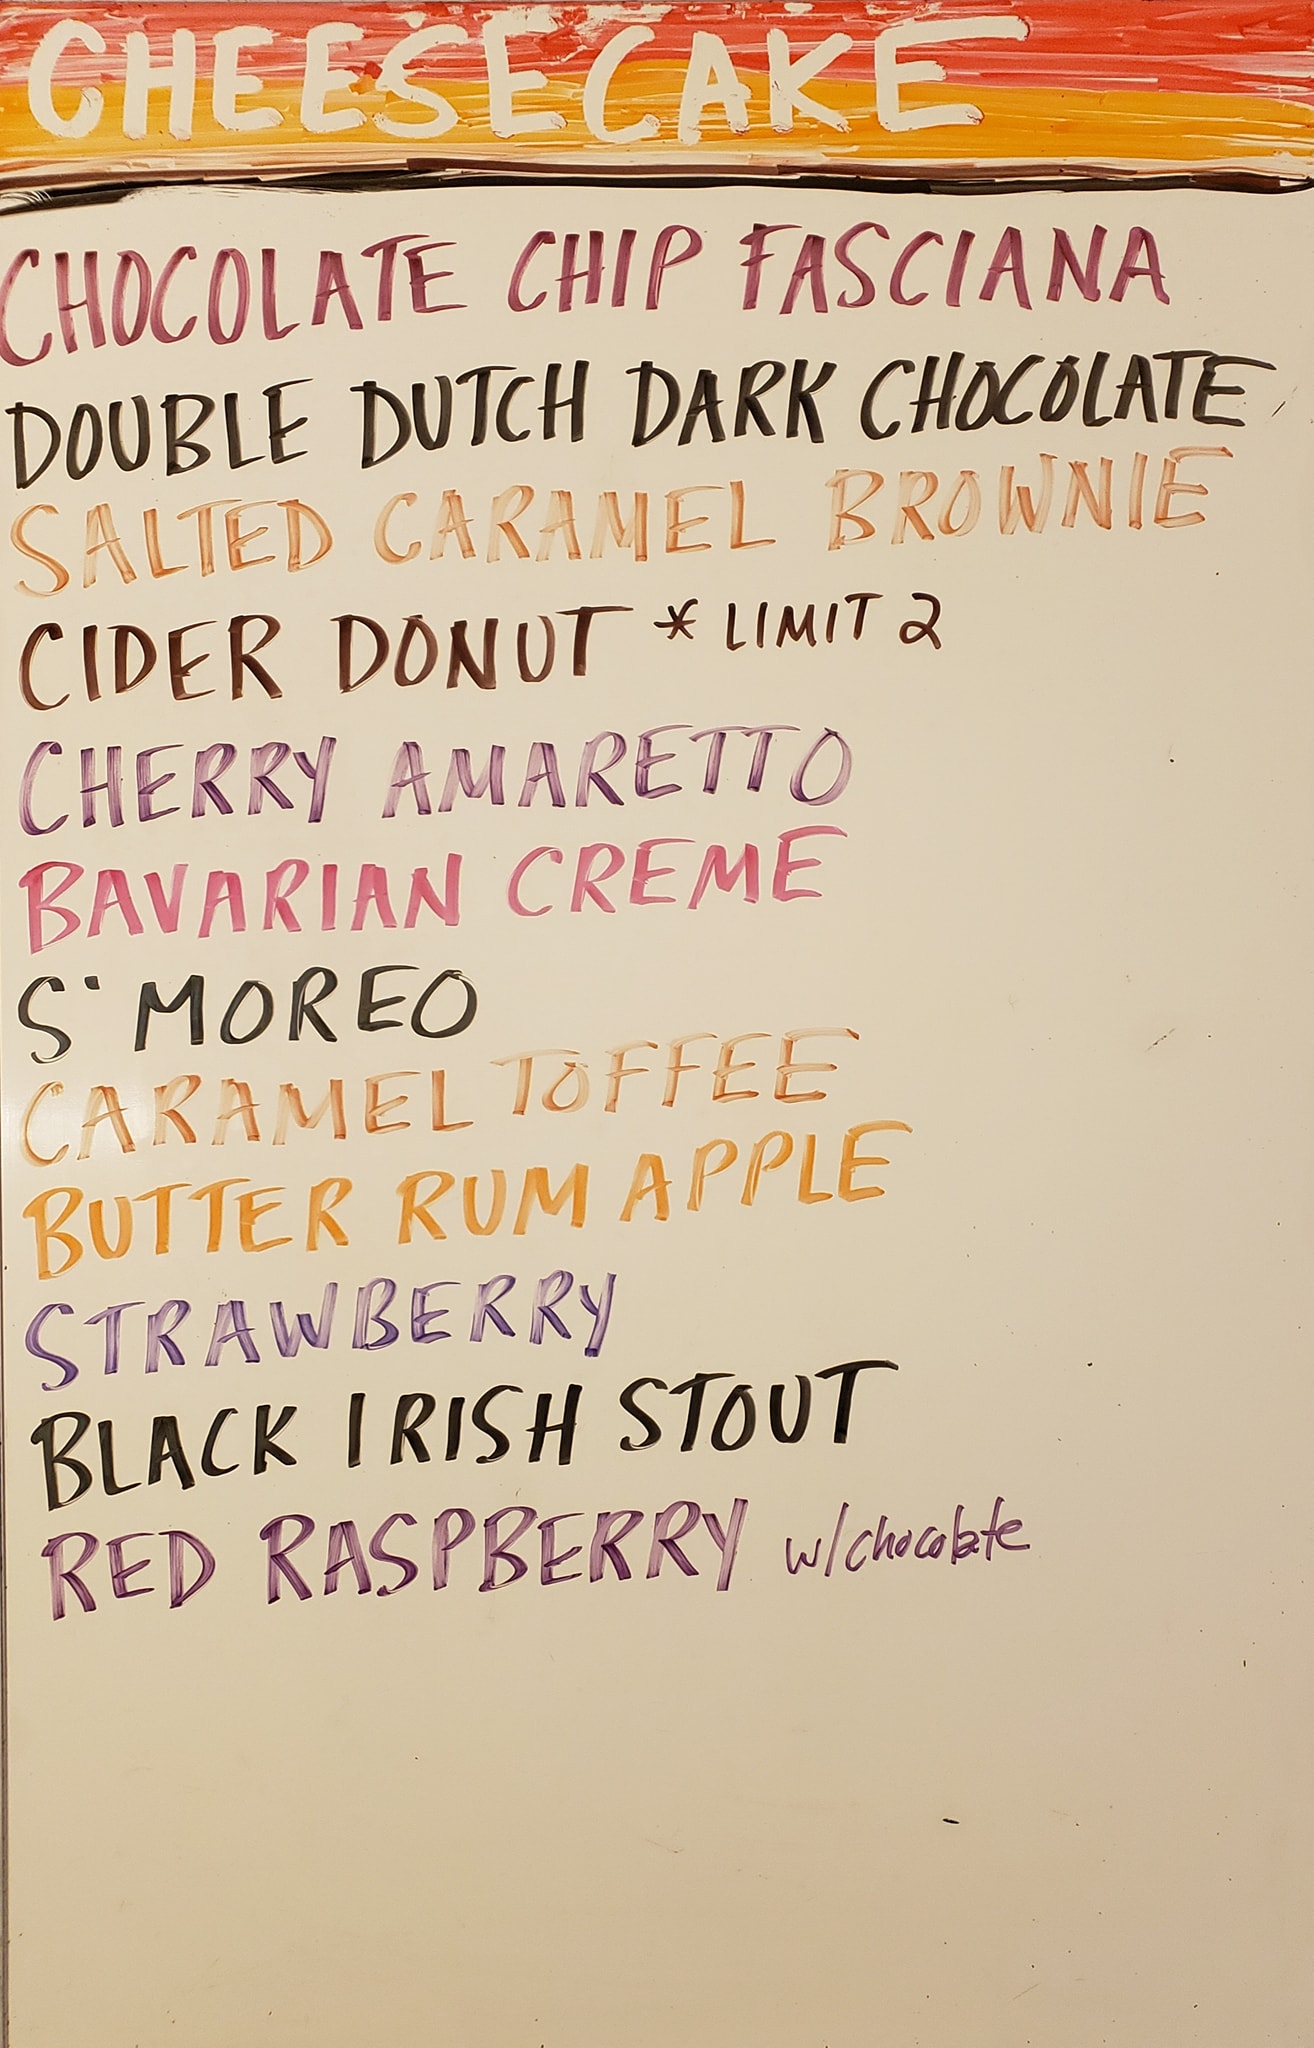 CHEESECAKE
CHOCOLATE CHIP FASCIANA
DOUBLE DUTCH DARK CHOCOLATE
SALTED CARAMEL BROWNIE
CIDER DONUT * LIMIT 2
CHERRY AMARETTO
BAVARIAN CREME
S'MOREO
CARAMEL TOFFEE
BUTTER RUM APPLE
STRAWBERRY
BLACK IRISH STOUT
RED RASPBERRY w/chocolate